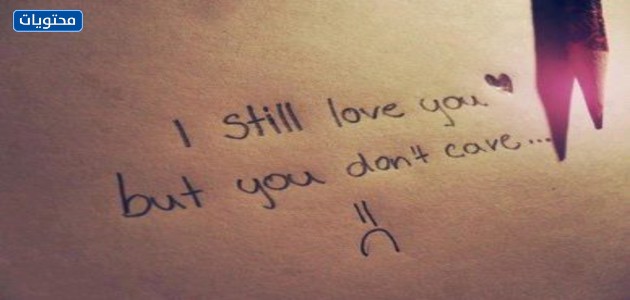 محتويات
I still love you♥
but you don't care...
=(